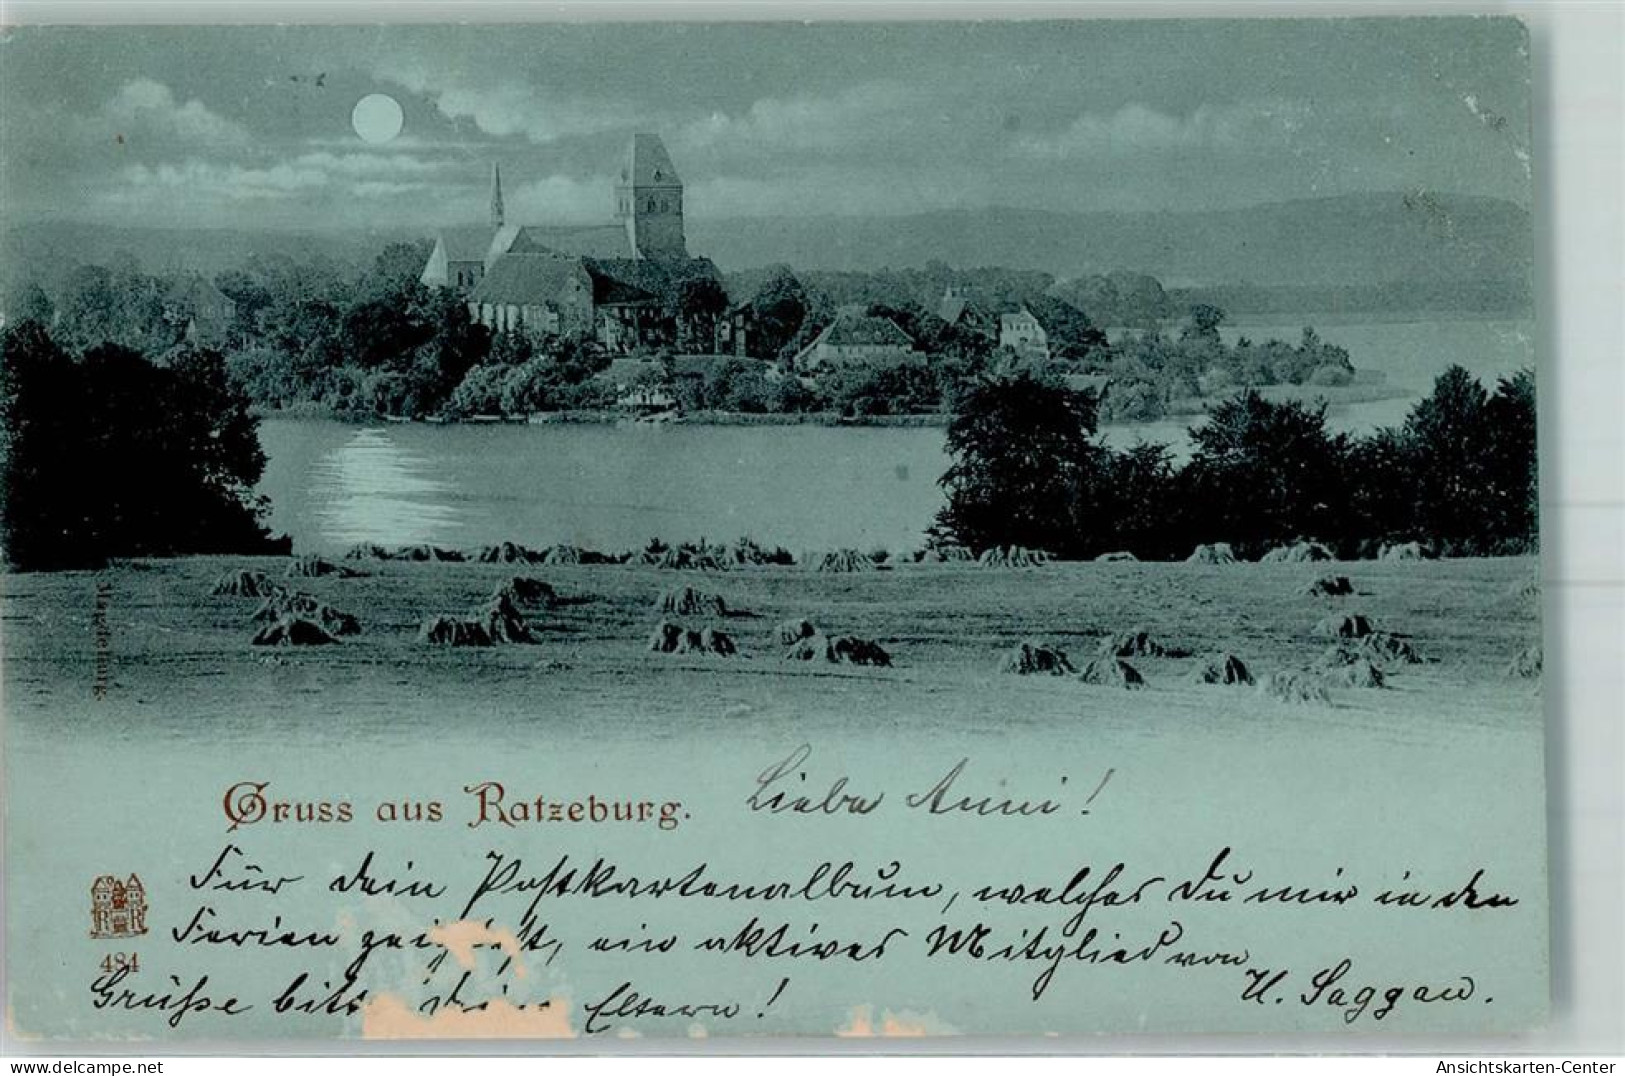 Magdeburg.
Gruss aus Ratzeburg.
Liebe Anni!
Für dein Postkartenalbum, welches Du mir in den
Ferien zeigtest, ein aktives Mitglied von
H. Saggau.
Grüße bitte deine Eltern!
R R
484
delcampe.net
Ansichtskarten-Center